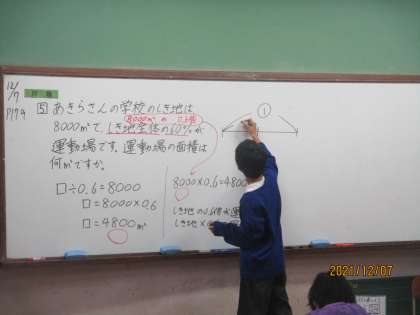 12/7
P179
5 あきらさんの学校のしき地は
8000m²の 0.6倍
8000m²で、しき地全体の60%が
運動場です。運動場の面積は
何m²ですか。
□÷0.6=8000
□=8000×0.6
□=4800m²
8000×0.6=4800
しき地の0.6倍が運
しき地×0.
①
2021/12/07